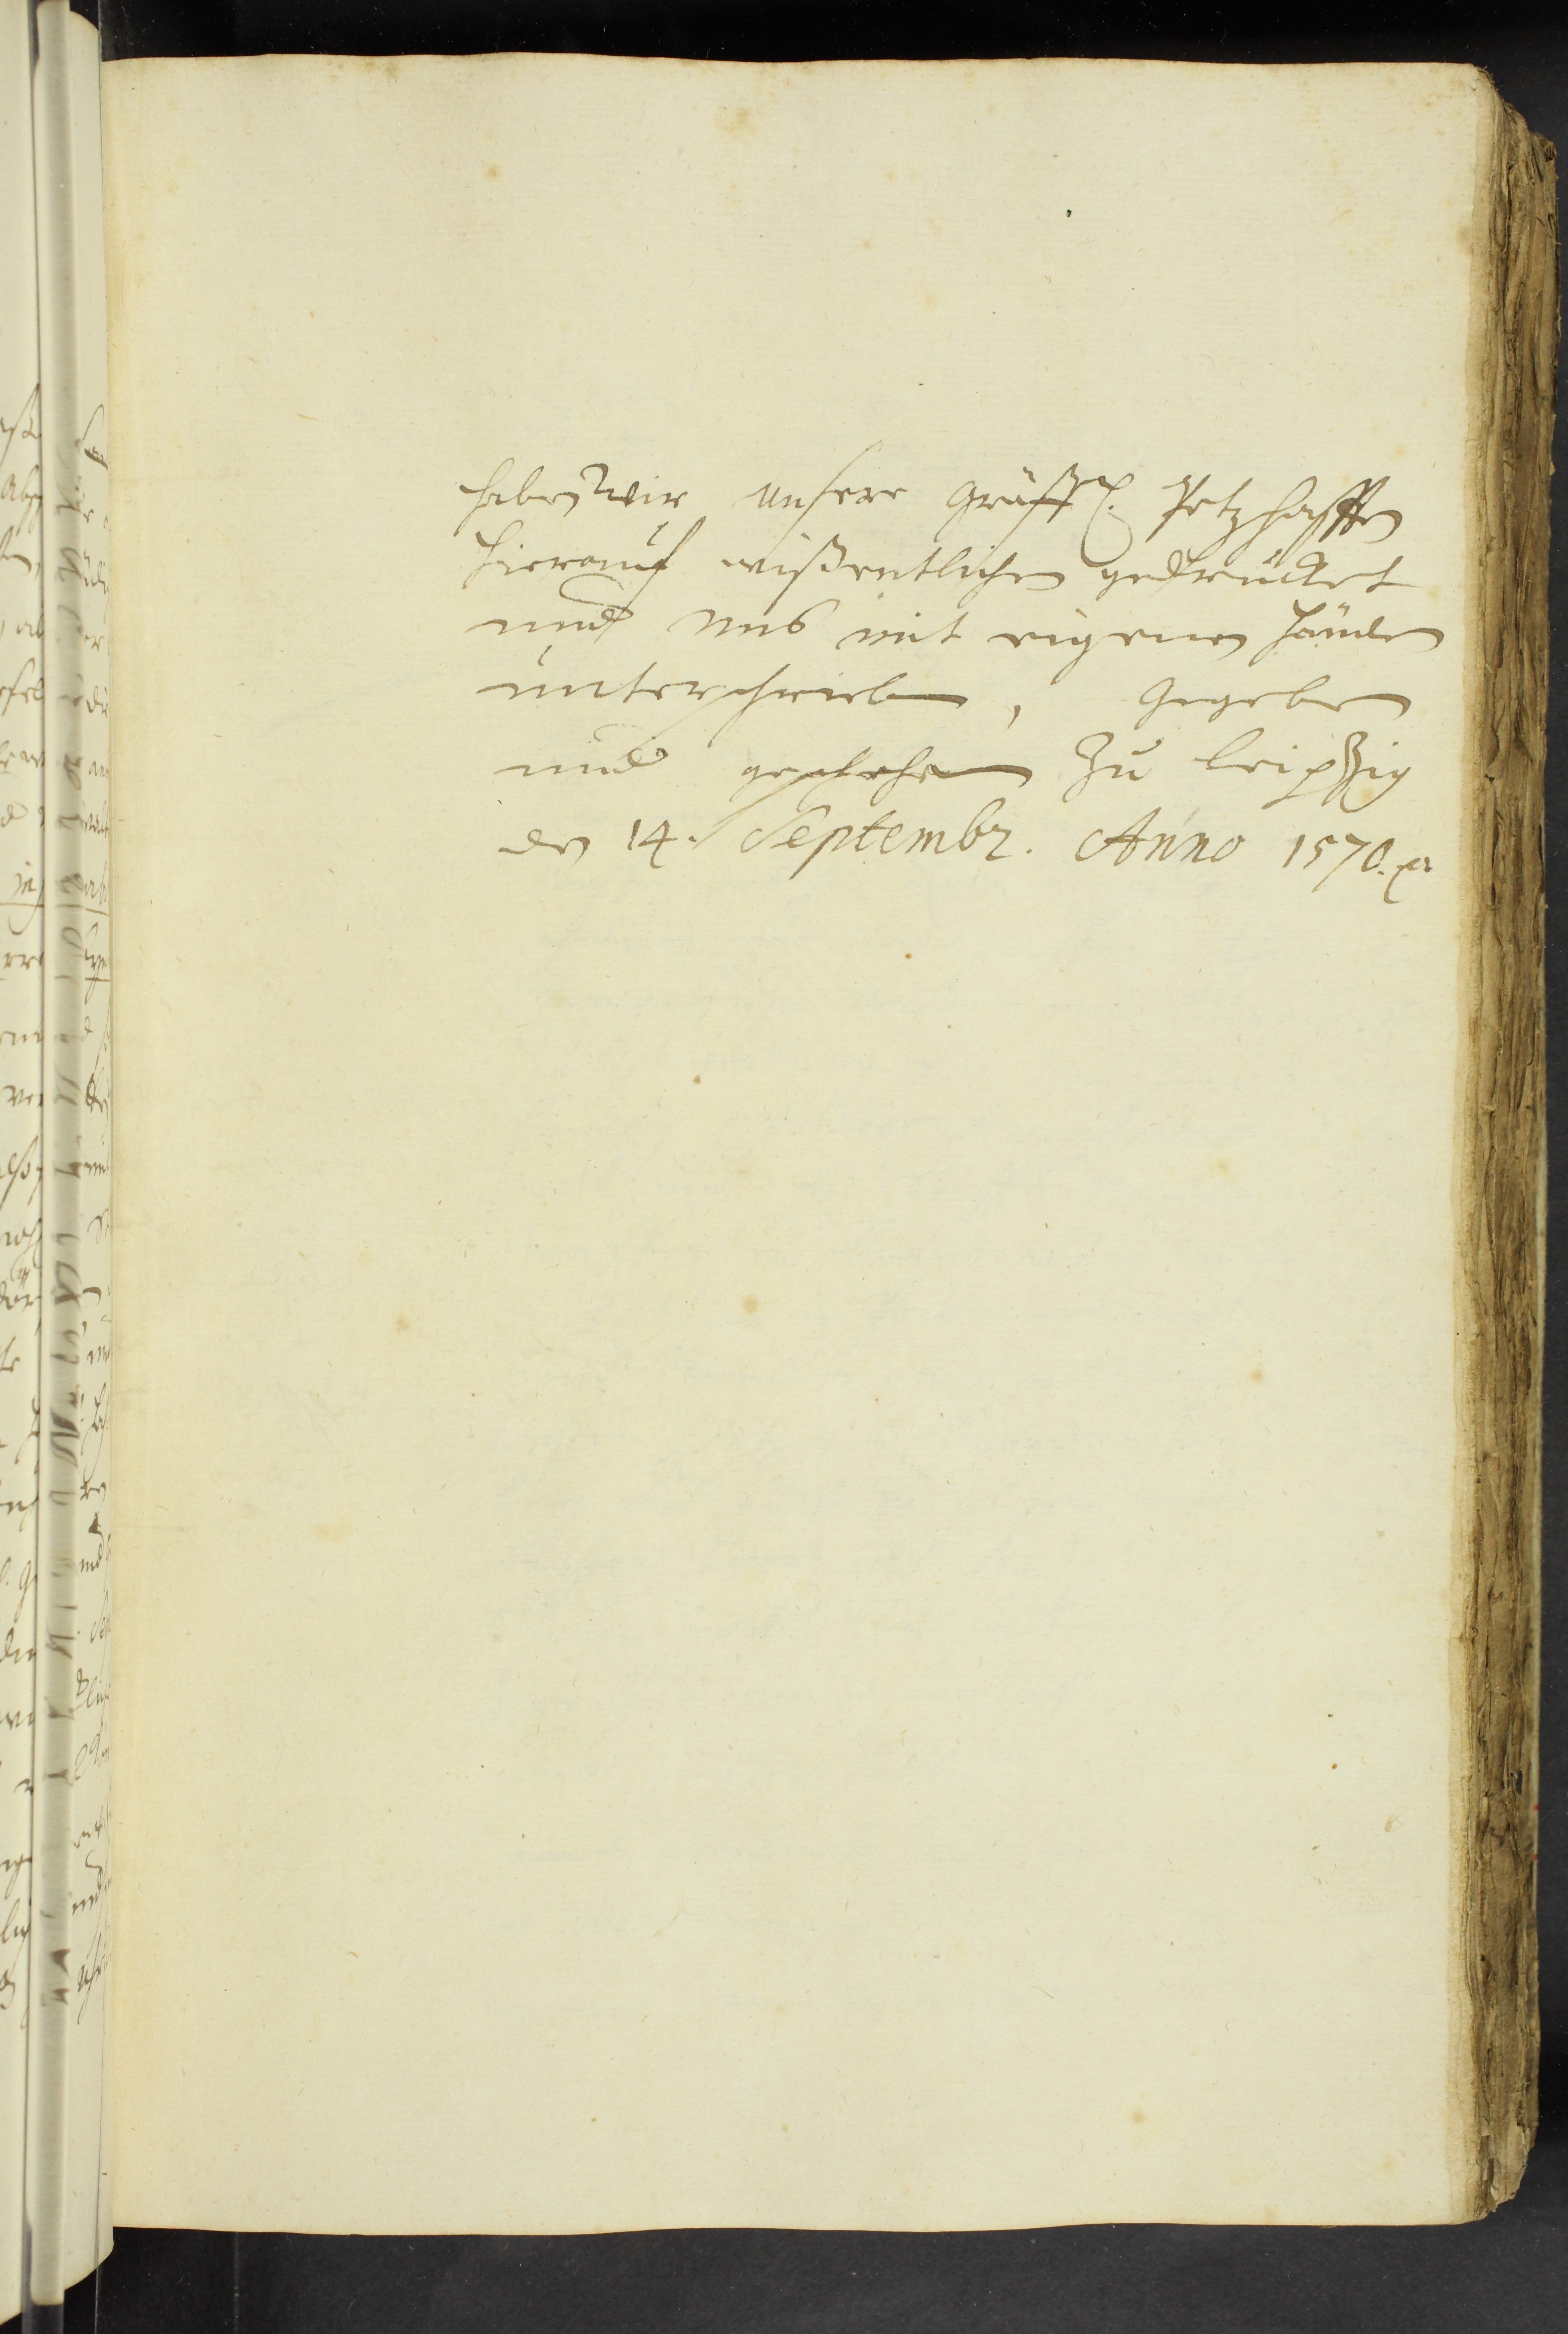 haben wir unsere Gräffl. Petzschafften
hierauf wißentlichen gedrucket
und uns mit eigenen Händen
unterschrieben, Gegeben
und geschehen Zu Leipzig
den 14. Septembr. Anno 1570.